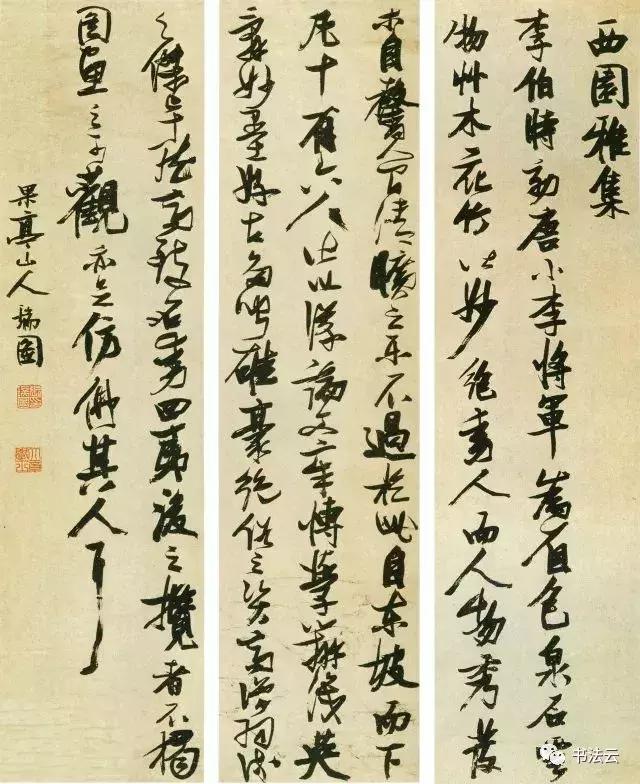 西園雅集
李伯時効唐小李將軍為著色泉石雲
物艸木花竹皆妙絕動人而人物秀發
人間清曠之樂不過於此自東坡而下
凡十有六人皆以議論文章博學辨識英
辭妙墨好古多聞雄豪絕俗之資高僧羽流
之傑卓然高致名動四夷後之攬者不獨
圖畫之可觀亦足仿佛其人耳
果亭山人瑞圖
书法云